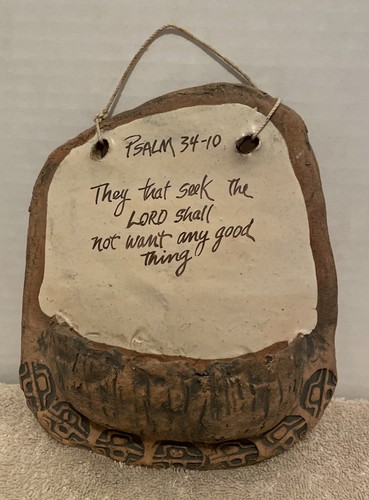 PSALM 34-10
They that seek the
LORD shall
not want any good
thing